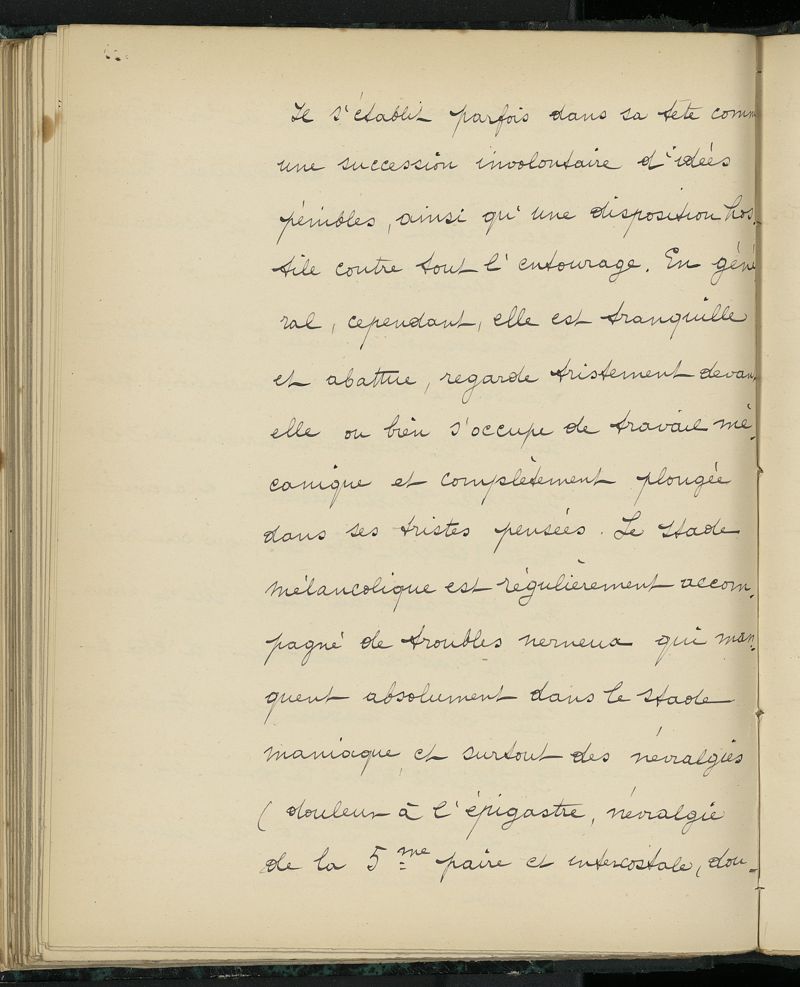 Il s'établit parfois dans sa tête comm
une succession involontaire d'idées
pénibles, ainsi qu'une disposition hos-
tile contre tout l'entourage. En géné
ral, cependant, elle est tranquille
et abattue, regarde tristement devan
elle ou bien s'occupe de travail mé-
canique et complètement plongée
dans ses tristes pensées. Le stade
mélancolique est régulièrement accom-
pagné de troubles nerveux qui man-
quent absolument dans le stade
maniaque, et surtout des névralgies
(douleur à l'épigastre, névralgie
de la 5me paire et intercostale, dou-